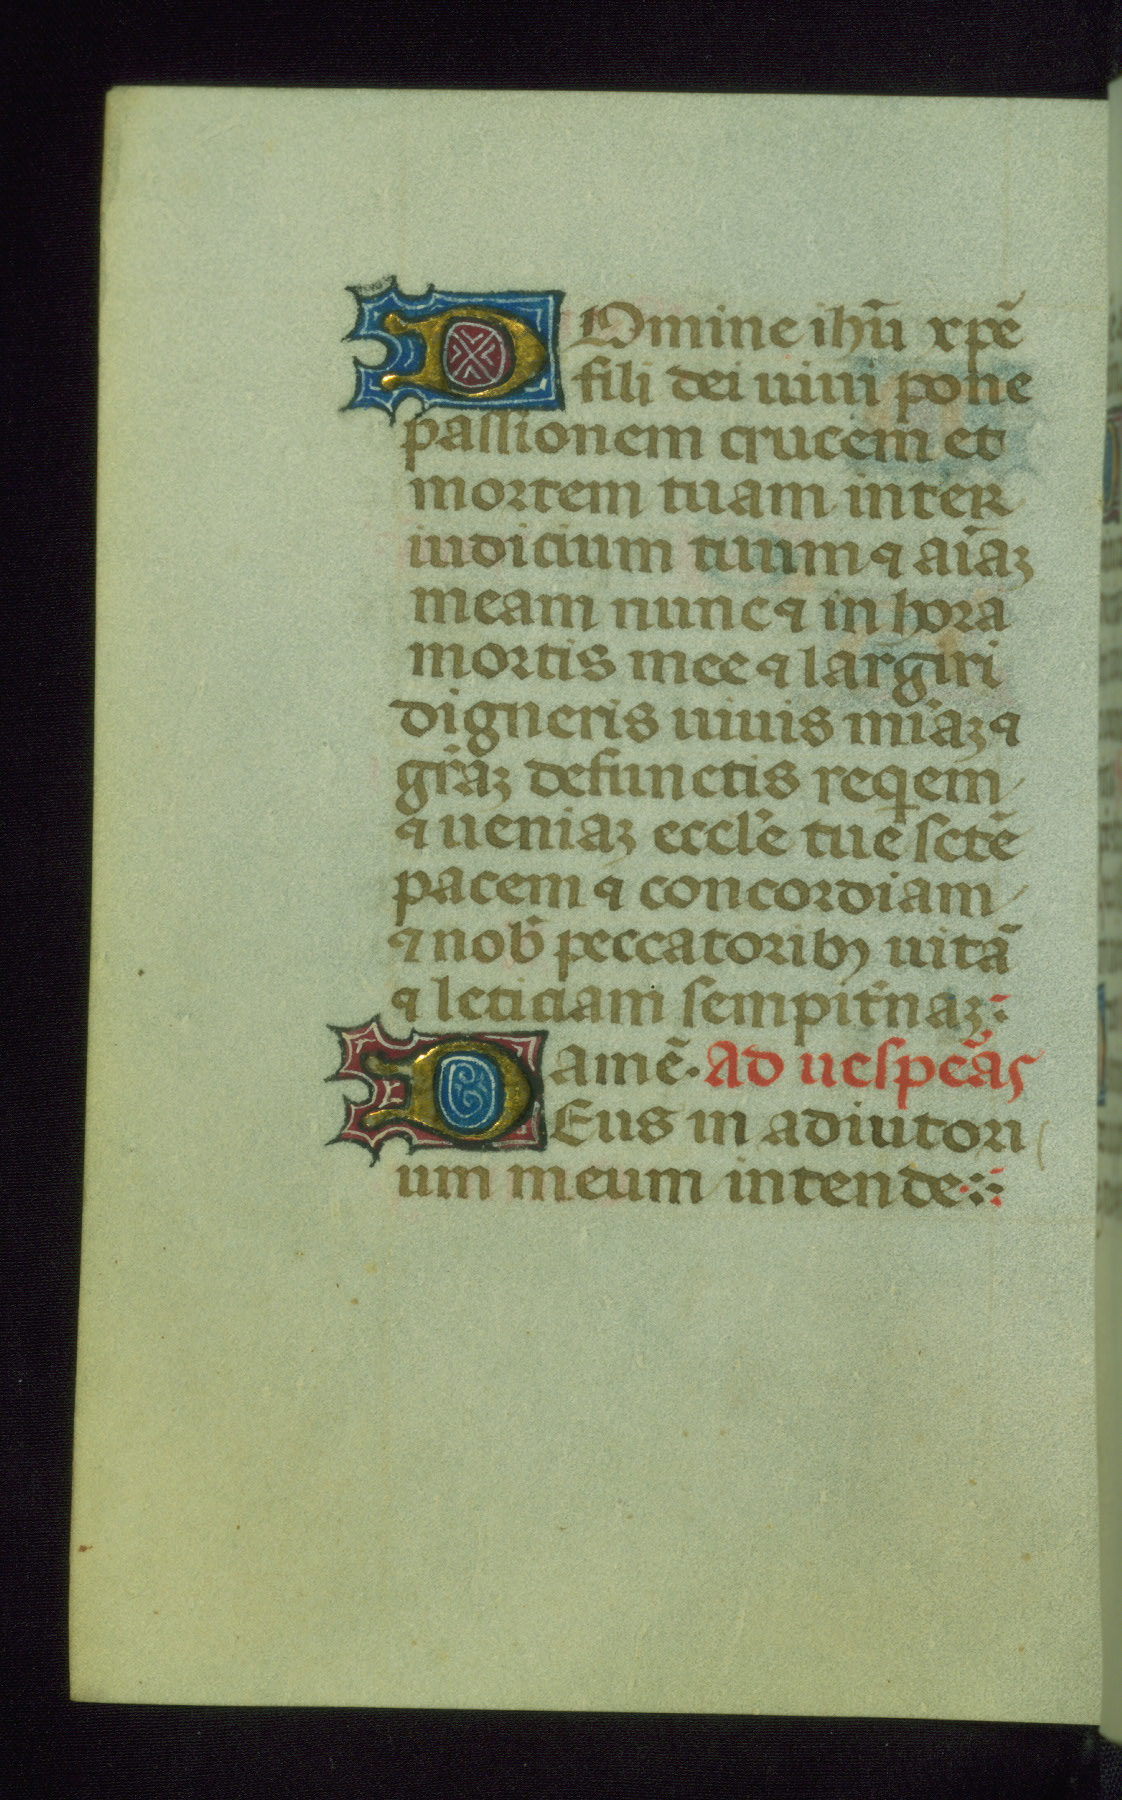 Domine ihū xpē
fili dei uiui pone
passionem crucem et
mortem tuam inter
iudicium tuum ⁊ aīaꝫ
meam nunc ⁊ in hora
mortis mee ⁊ largiri
digneris uiuis mīaꝫ ⁊
grāꝫ defunctis reqem
⁊ ueniaꝫ eccl'e tue sctē
pacem ⁊ concordiam
⁊ nob̄ peccatoribꝫ uitā
⁊ leticiam sempit̄naꝫ:
amē. Ad uespēas
Deus in adiutori
um meum intende: